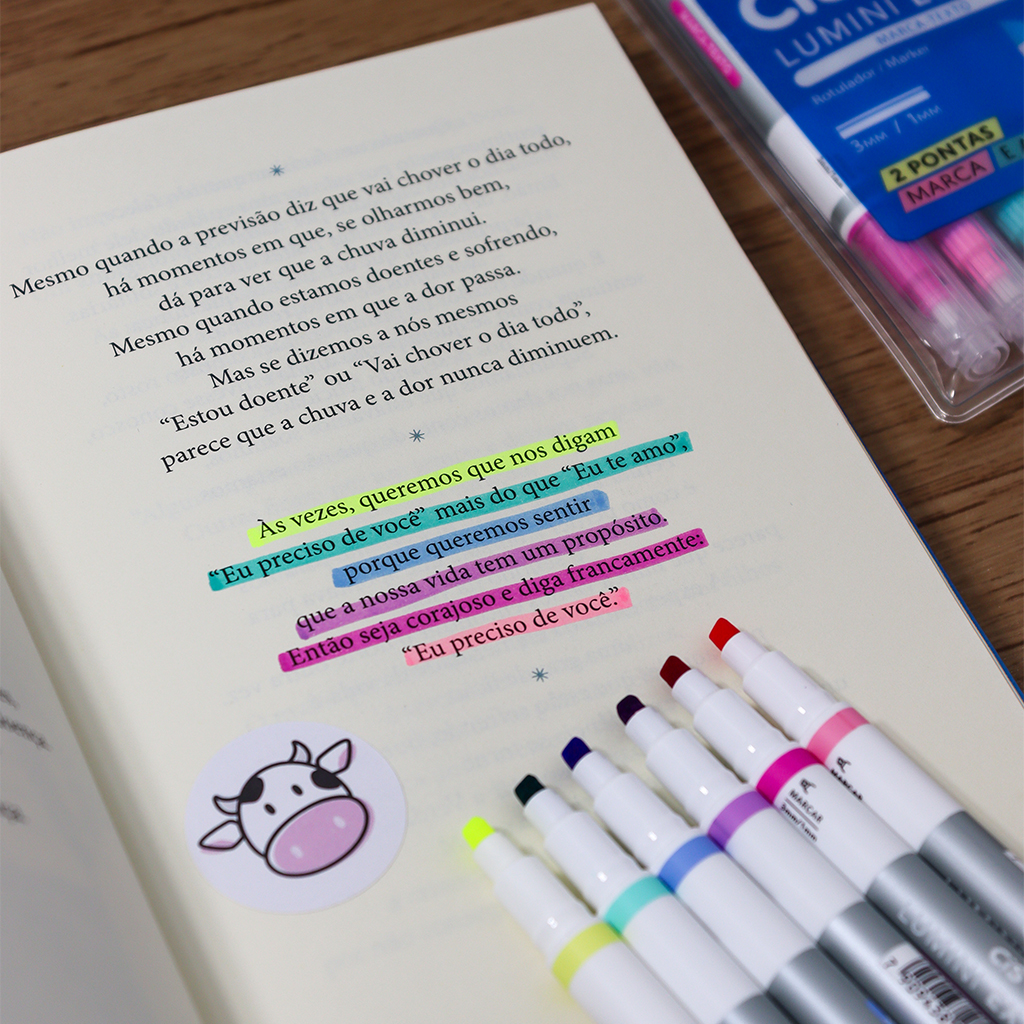 LUMINI
MARCA TEXTO
Rotulador / Marker
3MM / 1MM
2 PONTAS
MARCA E
Mesmo quando a previsão diz que vai chover o dia todo,
há momentos em que, se olharmos bem,
dá para ver que a chuva diminui.
Mesmo quando estamos doentes e sofrendo,
há momentos em que a dor passa.
Mas se dizemos a nós mesmos
“Estou doente” ou “Vai chover o dia todo”,
parece que a chuva e a dor nunca diminuem.
Às vezes, queremos que nos digam
“Eu preciso de você” mais do que “Eu te amo”,
porque queremos sentir
que a nossa vida tem um propósito.
Então seja corajoso e diga francamente:
“Eu preciso de você”.
MARCAR
3mm/1mm
MARCAR
LUMINI